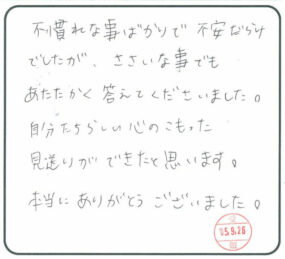 不慣れな事ばかりで 不安だらけ
でしたが、ささいな事でも
あたたかく 答えてくださいました。
自分たちらしい心のこもった
見送りができたと思います。
本当に ありがとう ございました。
05.9.26